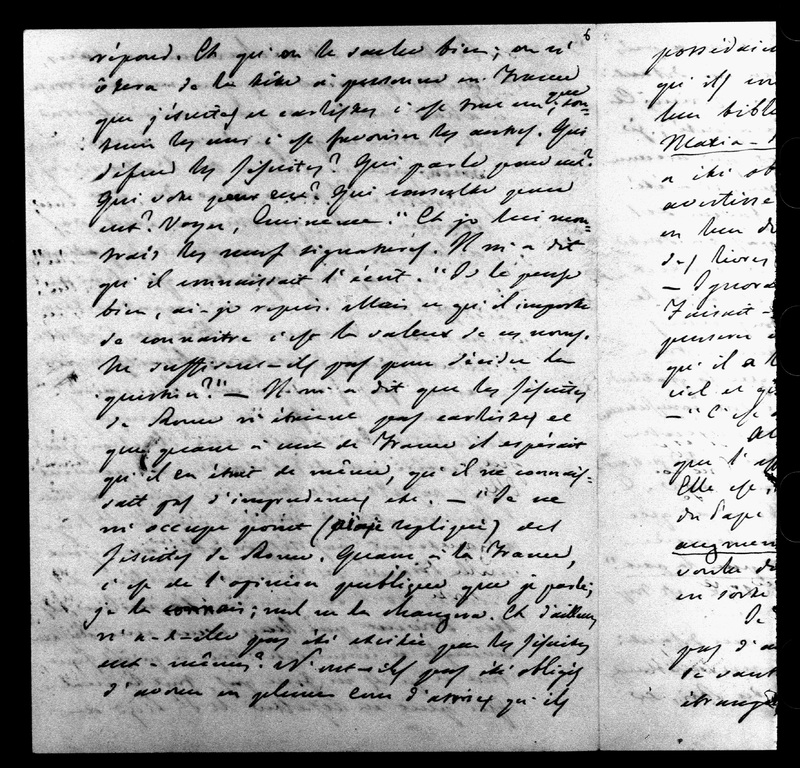 6
répond. Et qu'on le sache bien; on n'
ôtera de la tête à personne en France
que jésuites et carlistes c'est tout un; que sou=
tenir les uns c'est favoriser les autres. Qui
défend les Jésuites? Qui parle pour eux?
Qui vote pour eux? Qui consulte pour
eux? Voyez, Eminence." Et je lui mon=
trais les neuf signatures. Il m'a dit
qu'il connaissait l'écrit. "Je le pense
bien, ai-je repris. Mais ce qu'il importe
de connaitre c'est la valeur de ces noms.
Ne suffisent-ils pas pour décider la
question?" — Il m'a dit que les Jésuites
de Rome n'étaient pas carlistes et
que quant à ceux de France il espérait
qu'il en était de même, qu'il ne connais-
sait pas d'imprudences etc. — "Je ne
m'occupe point (ai-je repliqué) des
Jésuites de Rome. Quant à la France,
c'est de l'opinion publique que je parle;
je la connais; nul ne la changera. Et d'ailleurs
n'a-t-elle pas été excitée par les Jésuites
eux-mêmes? N'ont-ils pas été obligés
d'avouer en pleine cour d'assises qu'ils
possédaien
qu'ils
leur bibl
Maria-
a été ob
avertisse
en leur
des livres
— Ignora
Faisait-
pensera
qu'il a
ciel et
— "C'est
que l'
Elle est
du Pape
augmen
voulu
en sorte
Je
pas d'a
le saut
étrang